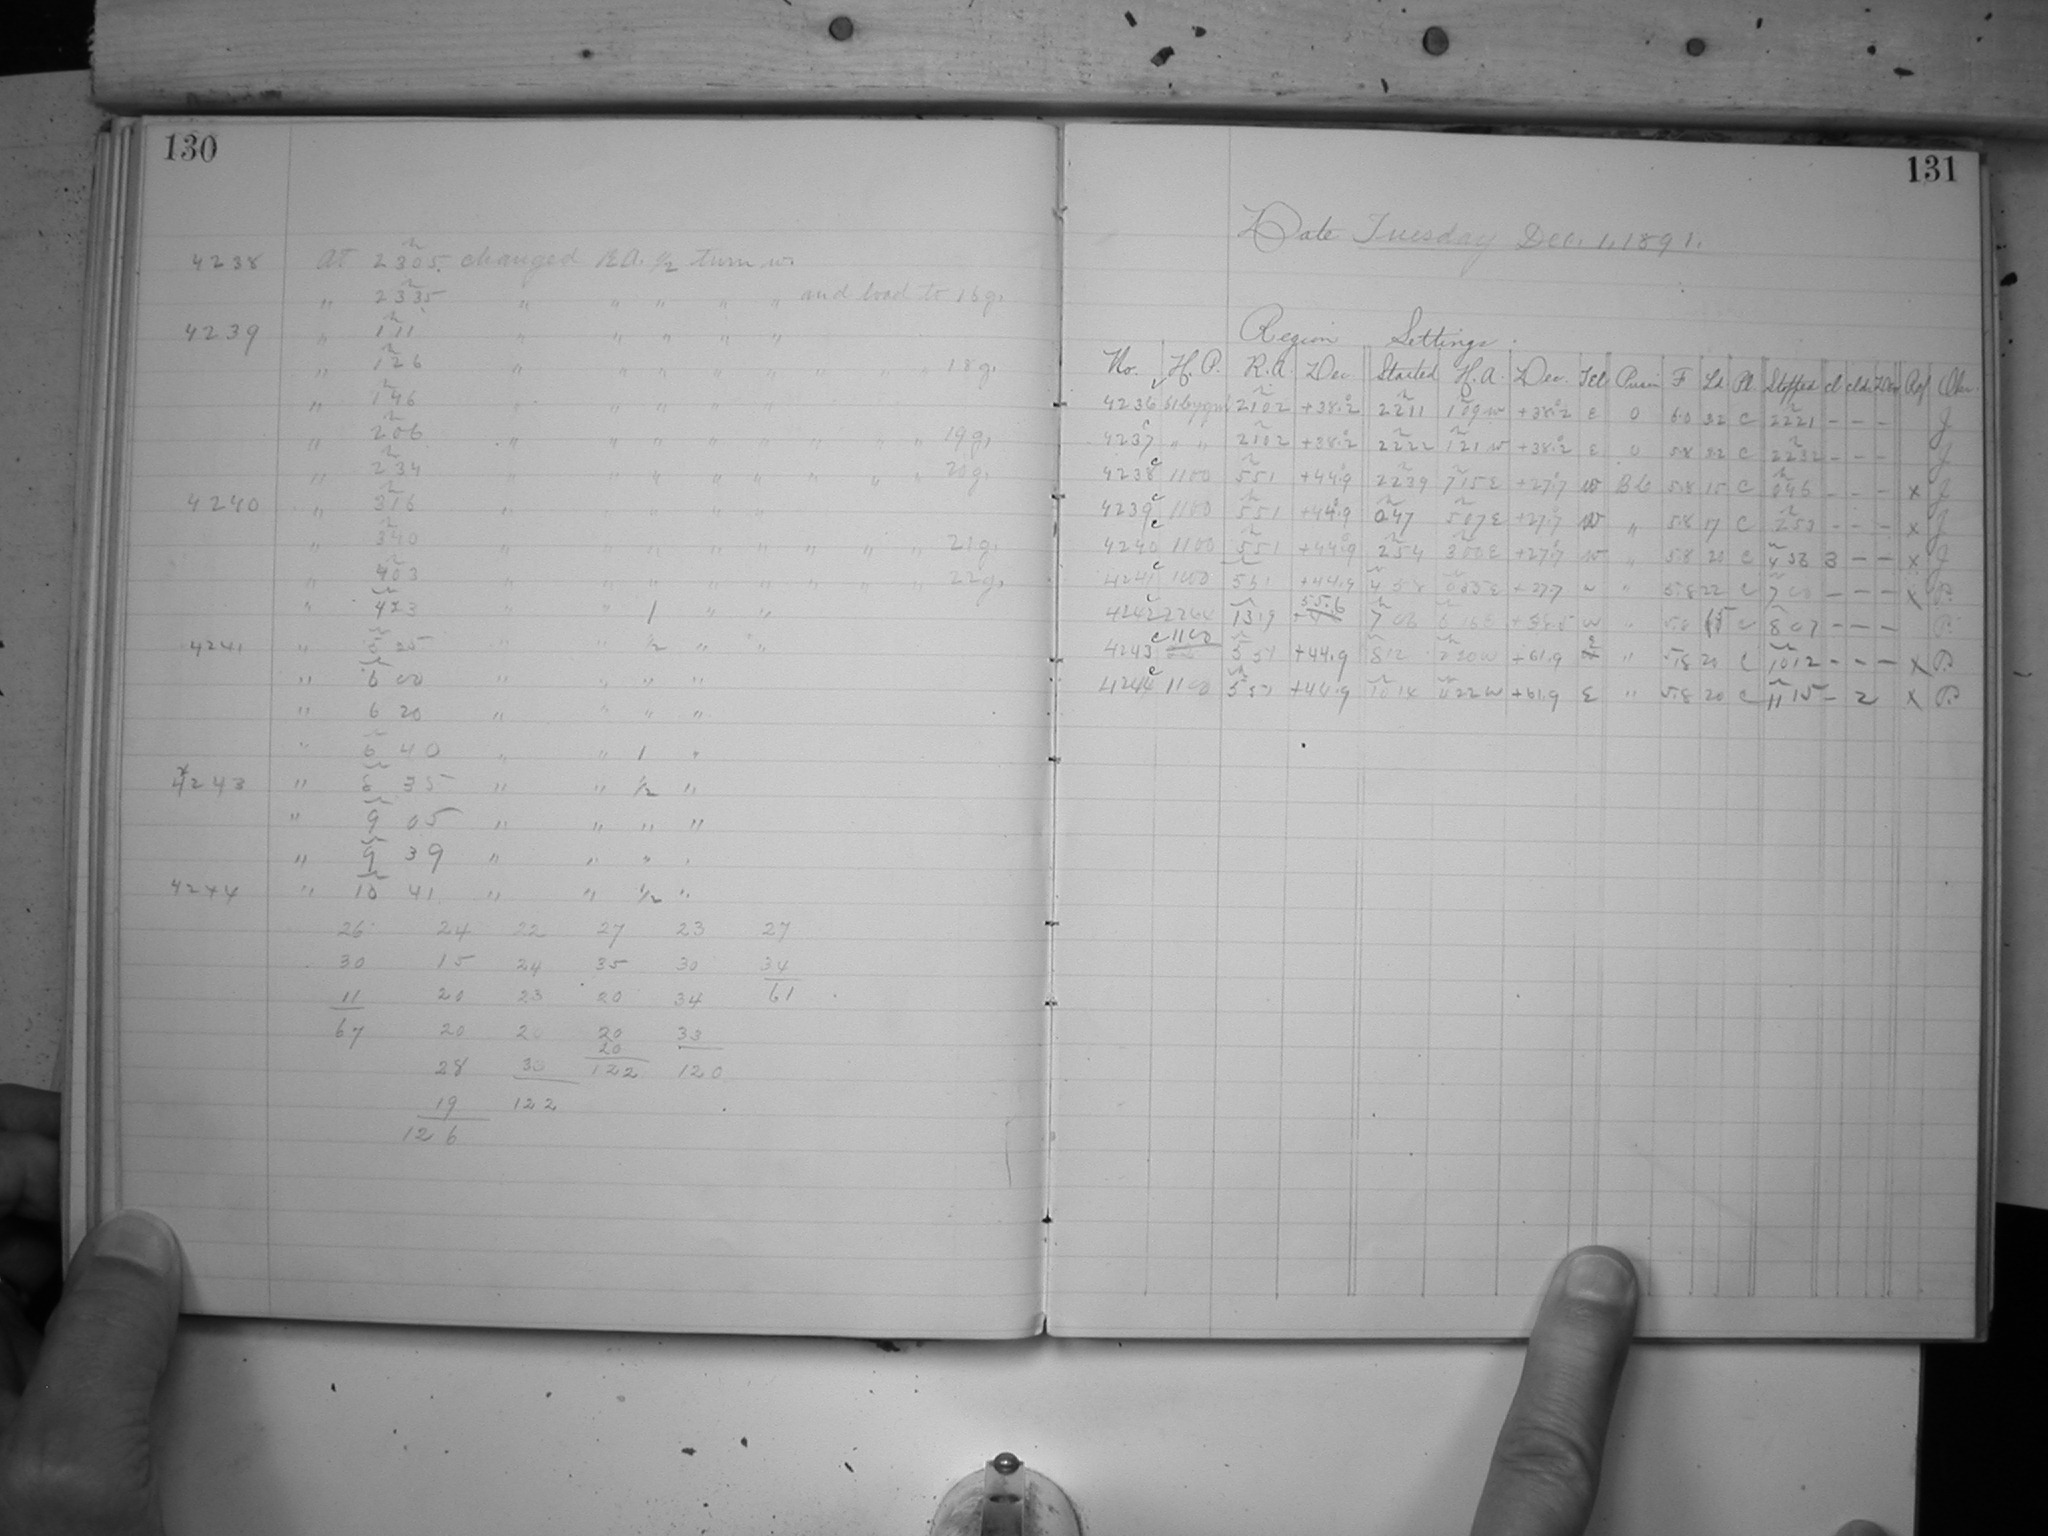 130
4238 At 2305 changed R.A. 1/2 turn w.
" 2335 " " " " " and load to 16g.
4239 " 111 " " " " "
" 126 " " " " " " " " 18g.
" 146 " " " " "
" 206 " " " " " " " " 19g.
" 234 " " " " " " " " 20g.
4240 " 316 " " " " "
" 340 " " " " " " " " 21g.
" 403 " " " " " " " " 22g.
" 423 " " 1 " "
4241 " 5 25 " " 1/2 " "
" 6 00 " " " "
" 6 20 " " " "
" 6 40 " " 1 "
4243 " 8 35 " " 1/2 "
" 9 05 " " " "
" 9 39 " " " "
4244 " 10 41 " " 1/2 "
26 24 22 27 23 27
30 15 24 35 30 34
11 20 23 20 34 61
67 20 20 33
20
28 30 122 120
19 122
126
131
Date Tuesday Dec. 1, 1891.
Region Settings.
No. H.P. R.A. Dec. Started H.A. Dec. Tel. Prism F Ld. Pl. Stopped cl cld. Dew Rof. Obs.
4236 61Cygni 2102 +38.2 2211 109w +38.2 E 0 6.0 32 C 2221 - - - J
4237 " " 2102 +38.2 2222 121w +38.2 E 0 5.8 32 C 2232 - - - J
4238 1100 551 +44.9 2239 715E +27.7 w 5.8 15 C 046 - - - x J
4239 1100 551 +44.9 047 507E +27.7 w " 5.8 17 C 253 - - - x J
4240 1100 551 +44.9 254 300E +27.7 w " 5.8 20 C 458 3 - - x J
4241 1100 551 +44.9 458 +27.7 w " 5.8 22 C 700 - - - x P.
4242 2264 13.9 55.6 w " 15 C 807 - - - P.
4243 1100 551 +44.9 812 220w +61.9 E " 5.8 20 C 1012 - - - x P.
4244 1100 551 +44.9 1014 422w +61.9 E " 5.8 20 C 1115 - 2 x P.